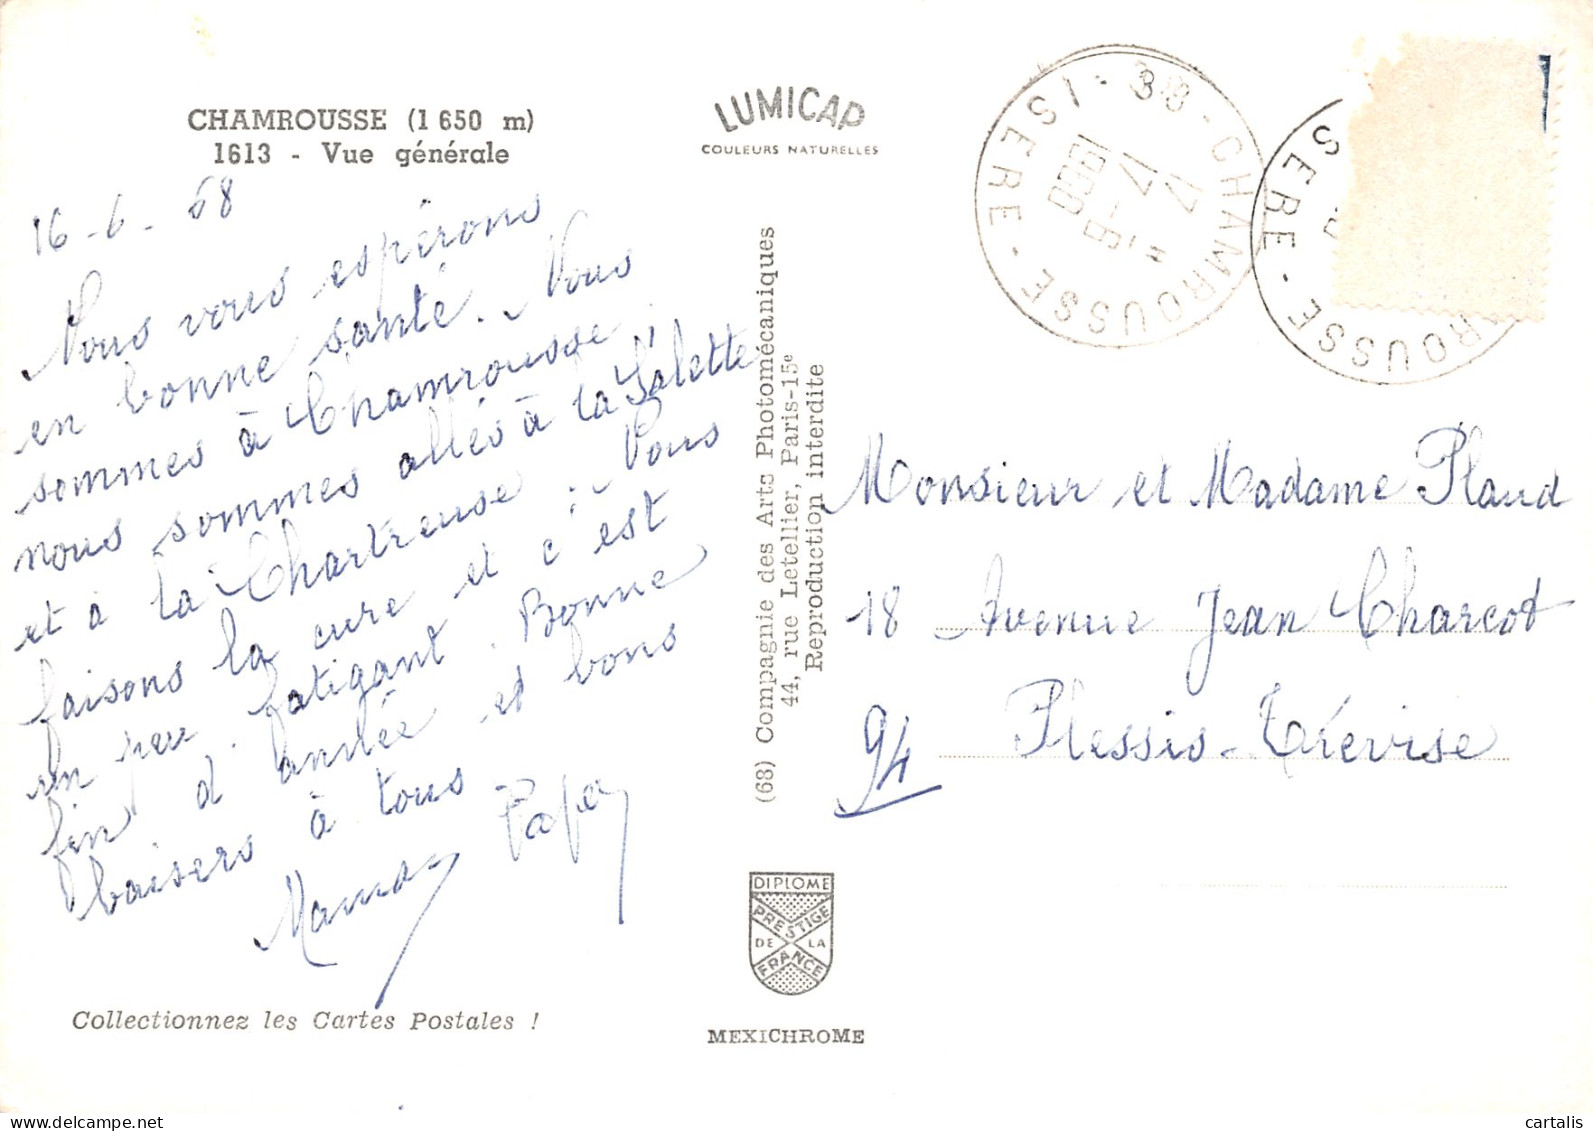 CHAMROUSSE (1 650 m)
1613 - Vue générale
LUMICAP
COULEURS NATURELLES
16-6-68
Nous vous espérons
en bonne santé. Nous
sommes à Chamrousse.
nous sommes allés à la Salette
et à la Chartreuse. Nous
faisons la cure et c'est
un peu fatigant. Bonne
fin d'année et bons
baisers à tous
Maman Papa
Collectionnez les Cartes Postales !
(68) Compagnie des Arts Photomécaniques
44, rue Letellier, Paris-15e
Reproduction interdite
DIPLOME
PRESTIGE
DE LA
FRANCE
MEXICHROME
38 - CHAMROUSSE
ISERE
ROUSSE
SERE
Monsieur et Madame Plaud
18 Avenue Jean Charcot
94 Plessis-Trévise
cartalis